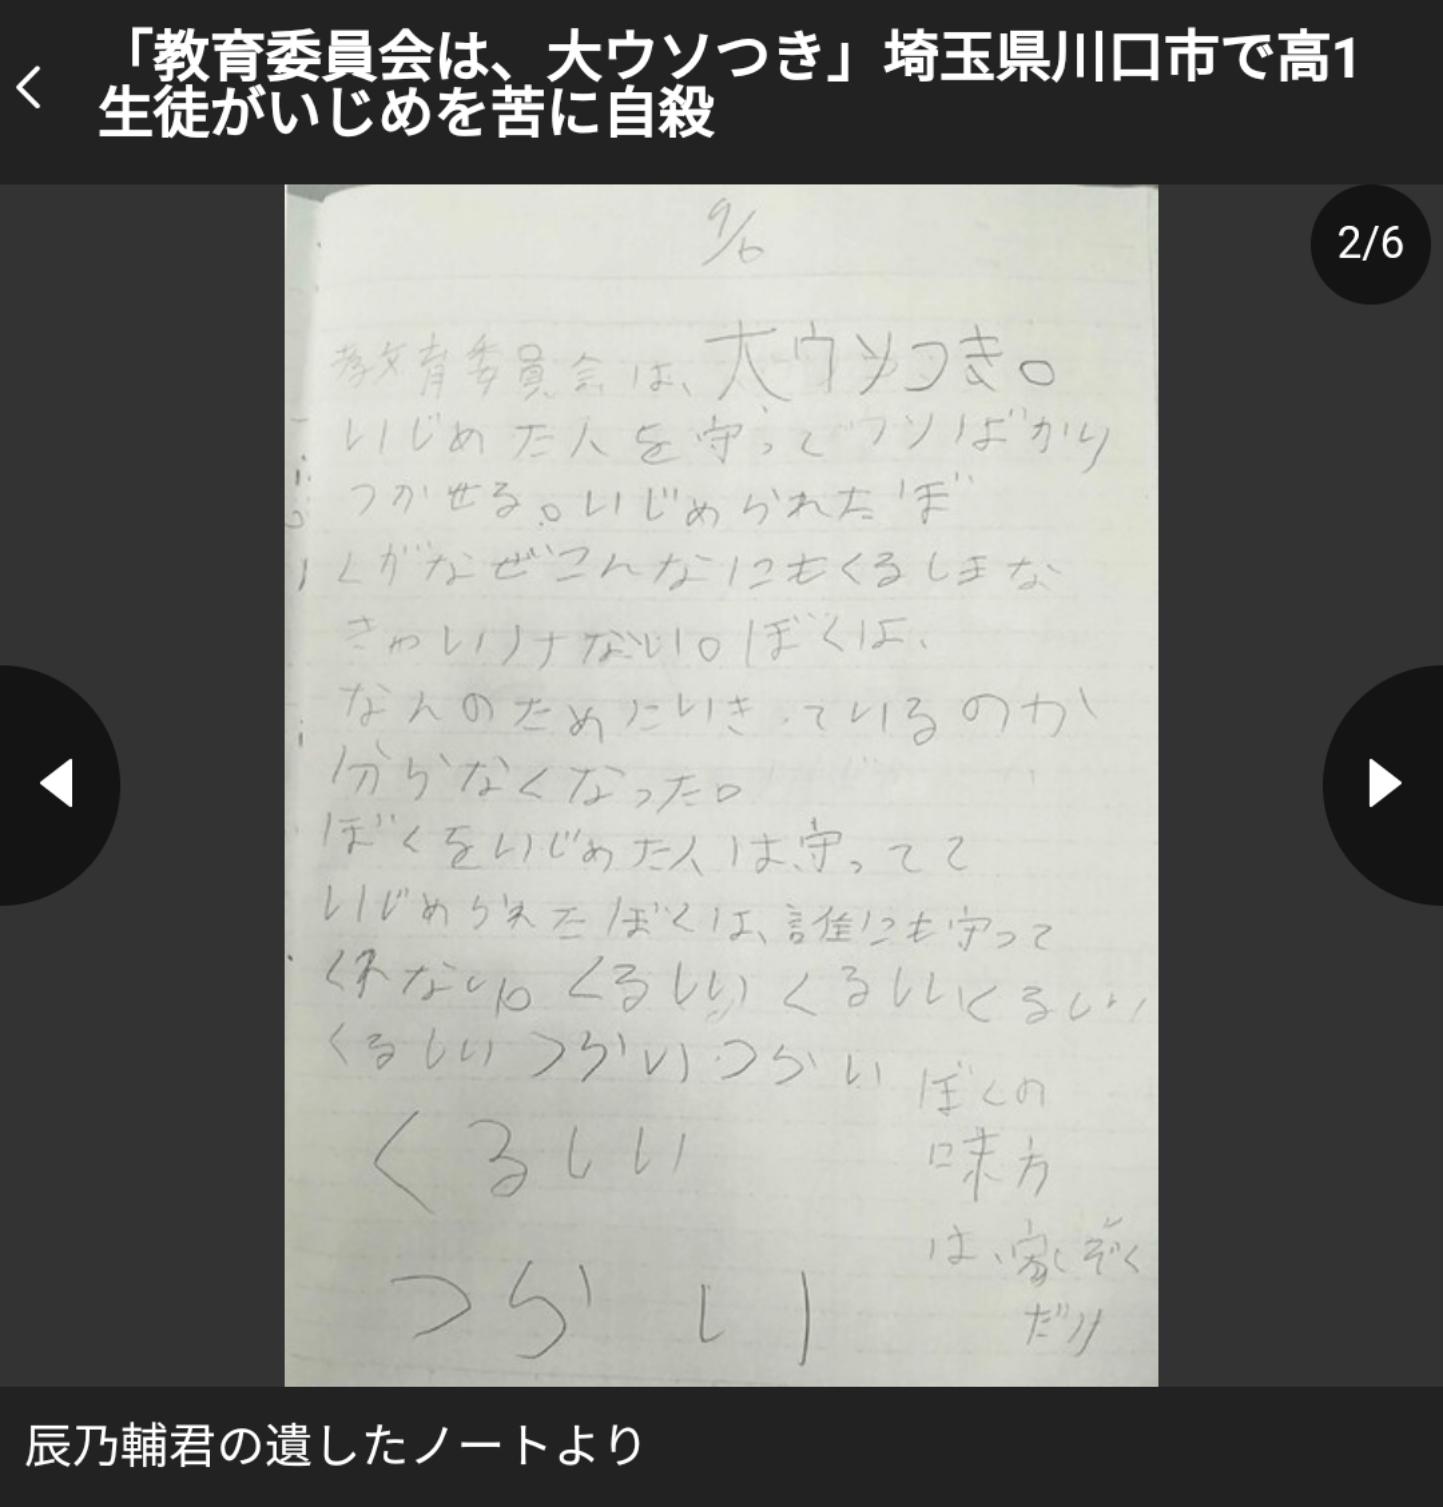 「教育委員会は、大ウソつき」埼玉県川口市で高1
生徒がいじめを苦に自殺
2/6
9/6
教育委員会は、大ウソつき。
いじめた人を守ってウソばかり
つかせる。いじめられたぼ
くがなぜこんなにもくるしまな
きゃいけない。ぼくは、
なんのためにいきているのか
分らなくなった。
ぼくをいじめた人は守ってて
いじめられたぼくは、誰にも守って
くれない。くるしいくるしいくるしい
くるしいつらいつらい
くるしい
つらい
ぼくの
味方
は、家ぞく
だけ
辰乃輔君の遺したノートより